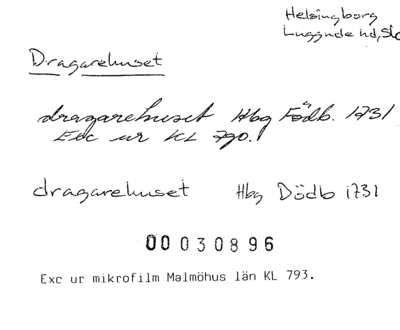 Helsingborg
Luggude hd, Sk
Dragarehuset
dragarehuset Hbg Födb. 1731
Exc ur KL 790.
dragarehuset Hbg Dödb 1731
00 030896
Exc ur mikrofilm Malmöhus län KL 793.